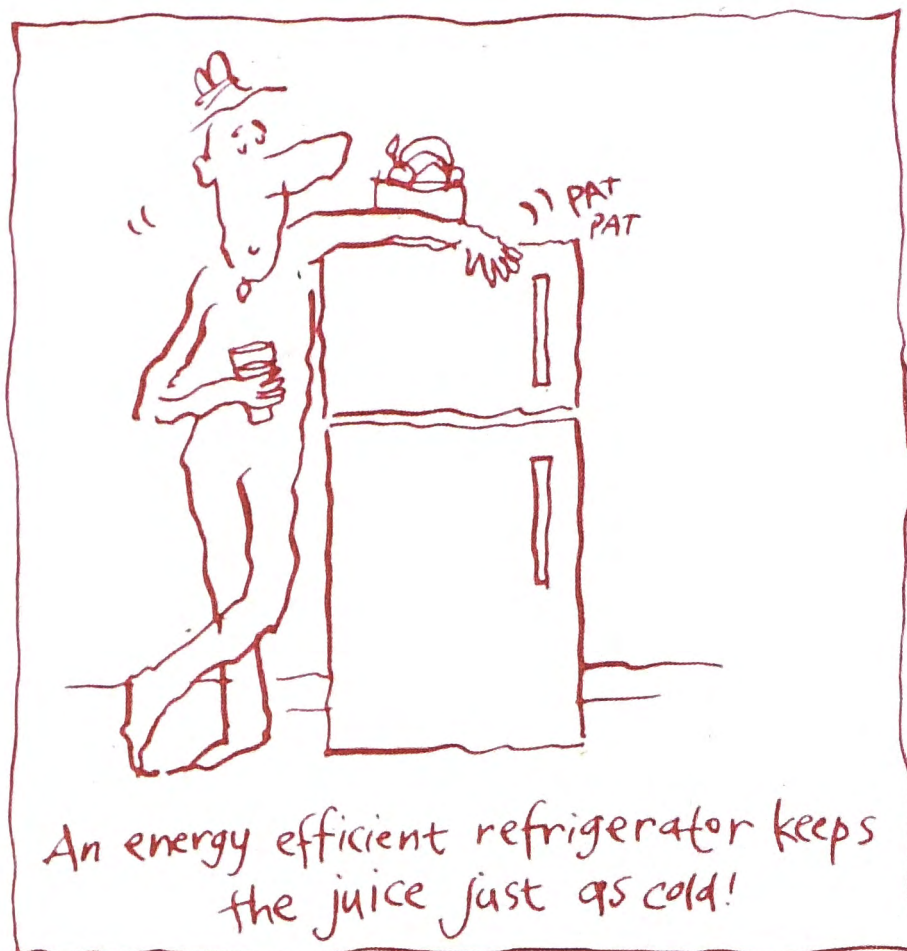 PAT
PAT
An energy efficient refrigerator keeps
the juice just as cold!